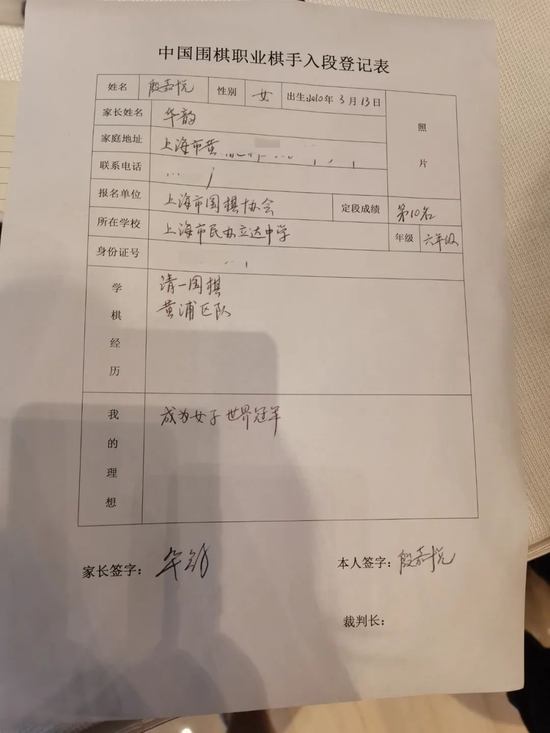 中国围棋职业棋手入段登记表
姓名 殷嘉悦 性别 女 出生2010年3月13日
照片
家长姓名 华韵
家庭地址 上海市黄
联系电话
报名单位 上海市围棋协会 定段成绩 第10名
所在学校 上海市民办立达中学 年级 六年级
身份证号
学棋经历
清一围棋
黄浦区队
我的理想
成为女子世界冠军
家长签字: 华韵 本人签字: 殷嘉悦
裁判长: